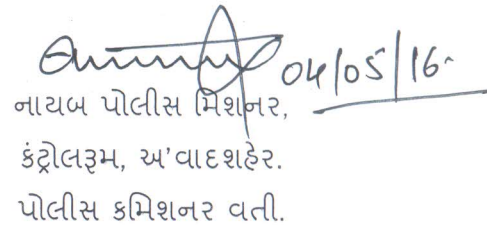 04/05/16
નાયબ પોલીસ મિશનર,
કંટ્રોલરૂમ, અ'વાદશહેર.
પોલીસ કમિશનર વતી.